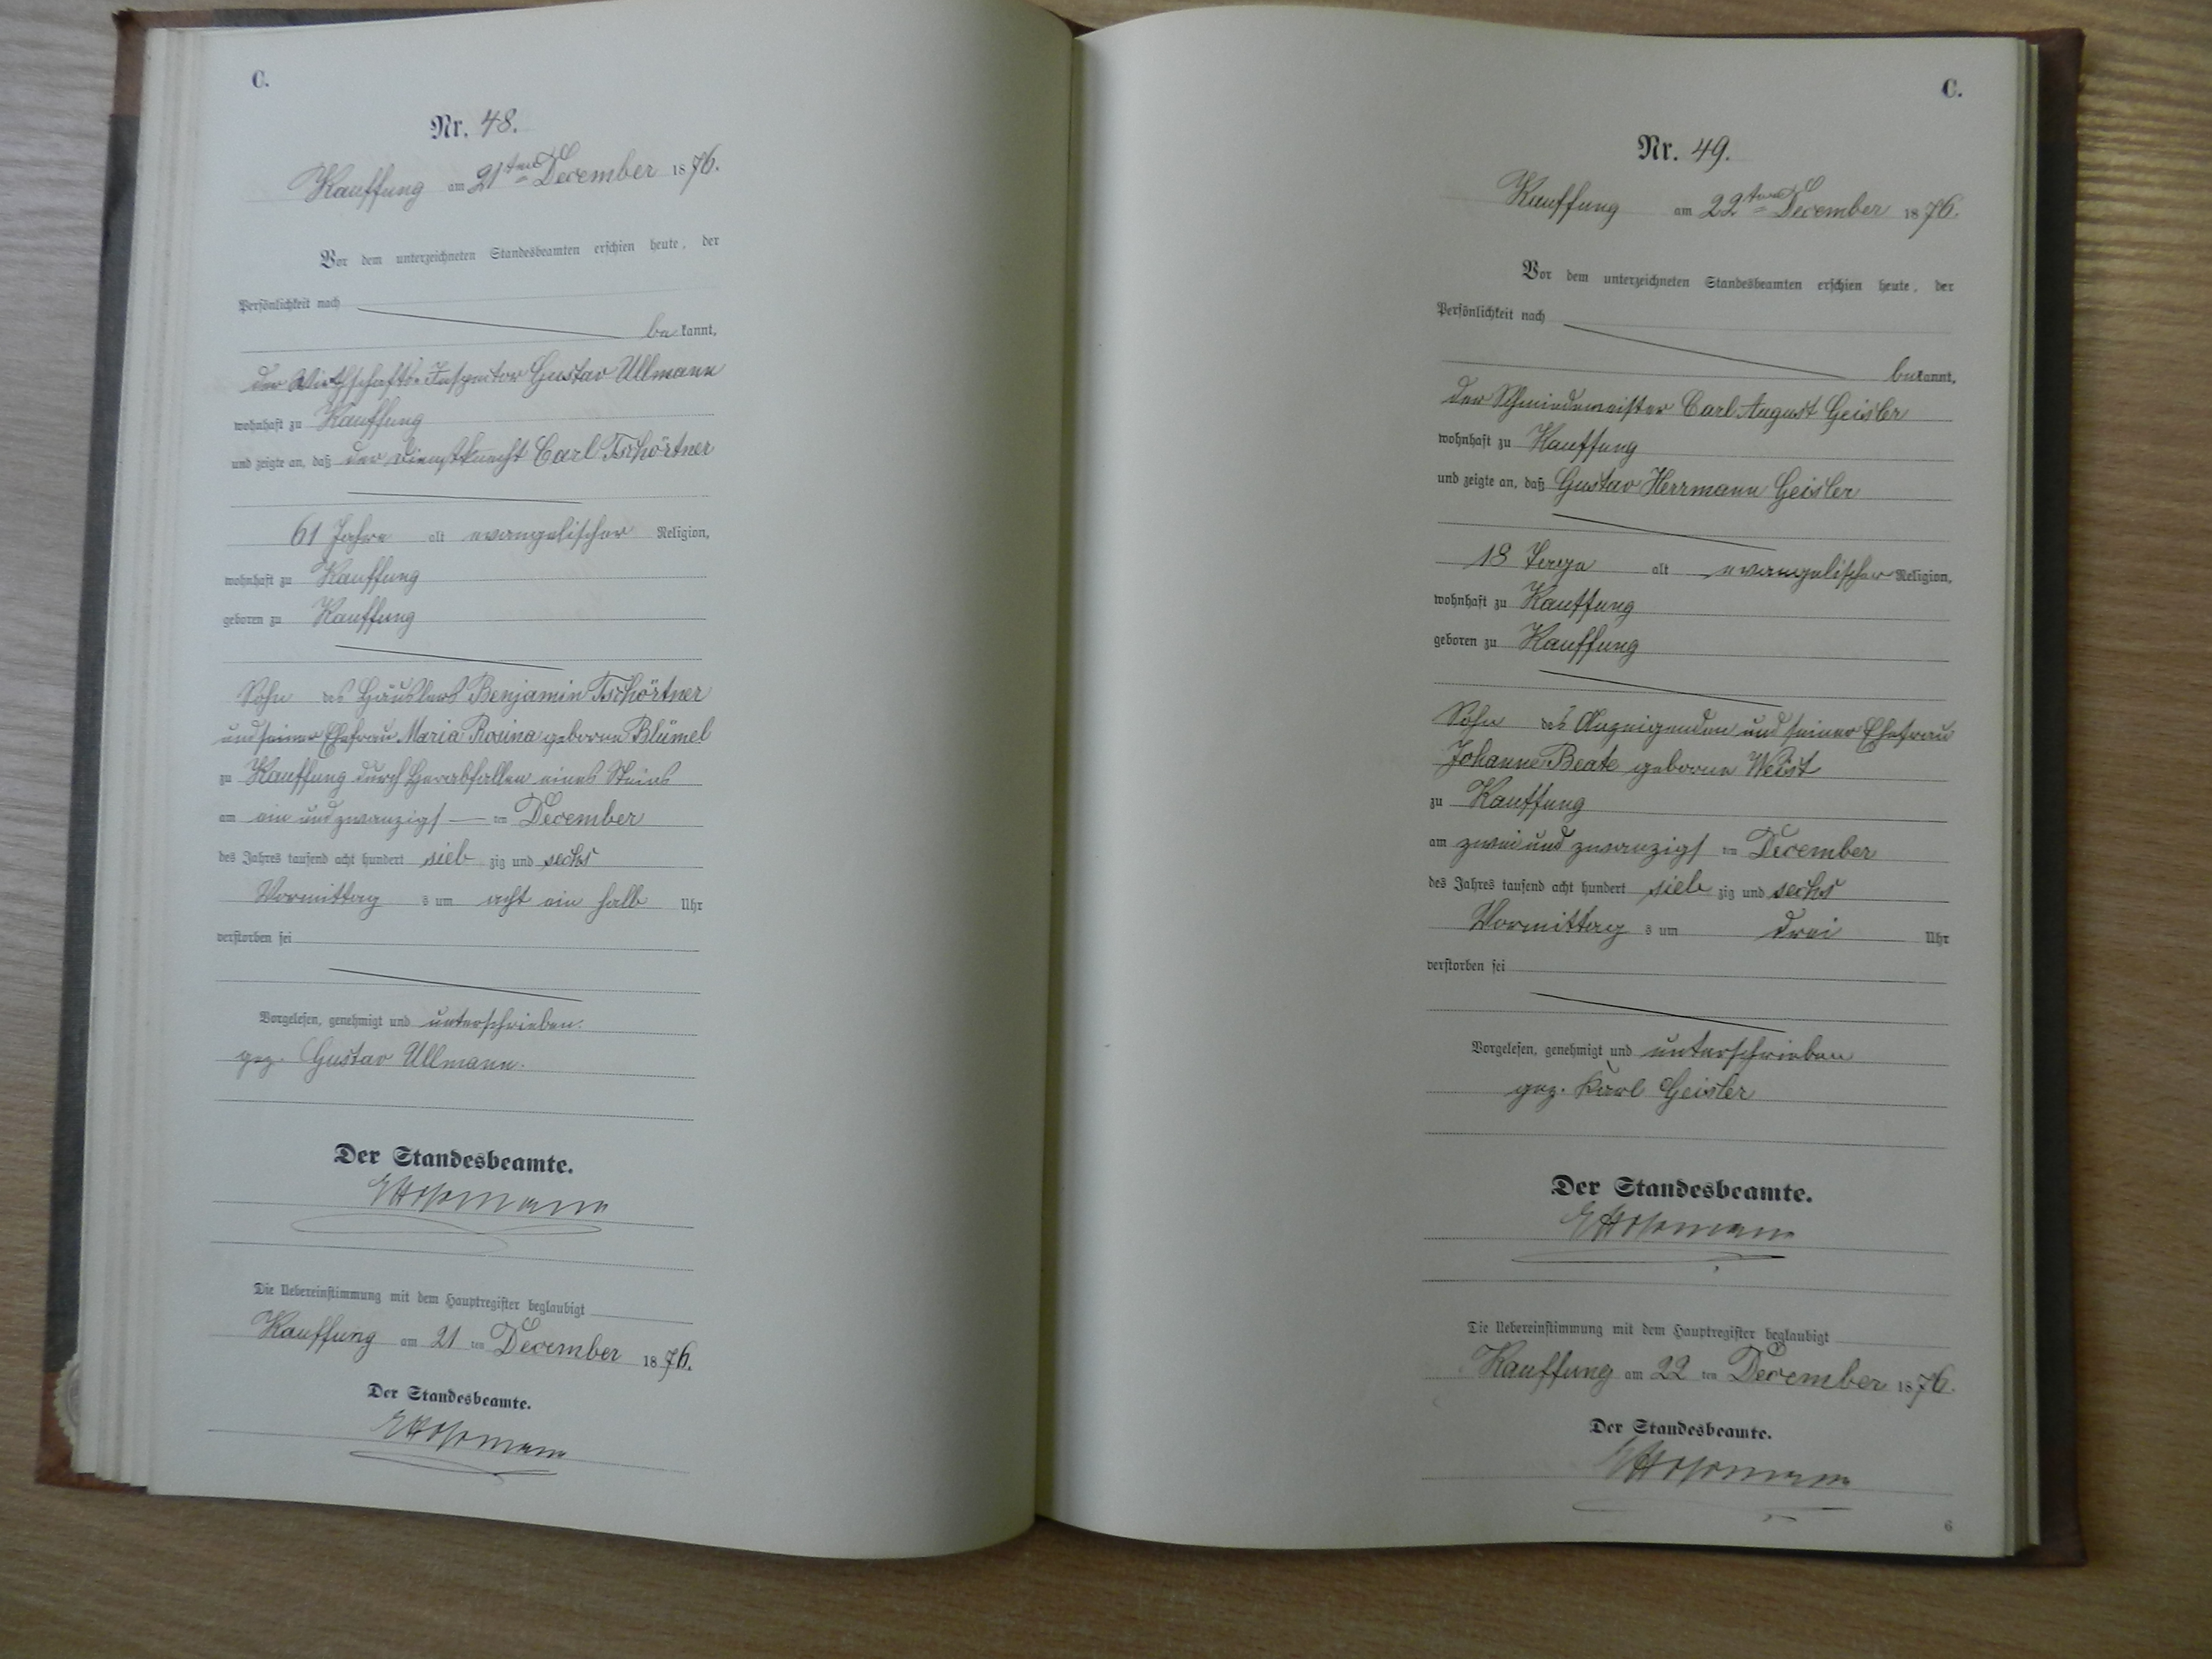 C.
Nr. 48.
Kauffung am 21ten December 1876.
Vor dem unterzeichneten Standesbeamten erschien heute, der
Persönlichkeit nach
bekannt,
der Wirthschafts-Inspector Gustav Ullmann
wohnhaft zu Kauffung
und zeigte an, daß der Dienstknecht Carl Tschörtner
61 Jahre alt evangelischer Religion,
wohnhaft zu Kauffung
geboren zu Kauffung
Sohn des Häuslers Benjamin Tschörtner
und seiner Ehefrau Maria Rosina geborne Blümel
zu Kauffung durch Herabfallen eines Steins
am ein und zwanzigs ten December
des Jahres tausend acht hundert siebzig und sechs
Vormittags um acht ein halb Uhr
verstorben sei
Vorgelesen, genehmigt und unterschrieben.
gez. Gustav Ullmann.
Der Standesbeamte.
Die Uebereinstimmung mit dem Hauptregister beglaubigt
Kauffung am 21 ten December 1876.
Der Standesbeamte.
C.
Nr. 49.
Kauffung am 22ten December 1876.
Vor dem unterzeichneten Standesbeamten erschien heute, der
Persönlichkeit nach
bekannt,
der Schmiedemeister Carl August Geisler
wohnhaft zu Kauffung
und zeigte an, daß Gustav Herrmann Geisler
18 Tage alt evangelischer Religion,
wohnhaft zu Kauffung
geboren zu Kauffung
Sohn des Anzeigenden und seiner Ehefrau
Johanne Beate geborne Weist
zu Kauffung
am zwei und zwanzigs ten December
des Jahres tausend acht hundert siebzig und sechs
Vormittags um drei Uhr
verstorben sei
Vorgelesen, genehmigt und unterschrieben
gez. Karl Geisler
Der Standesbeamte.
Die Uebereinstimmung mit dem Hauptregister beglaubigt
Kauffung am 22 ten December 1876.
Der Standesbeamte.
6